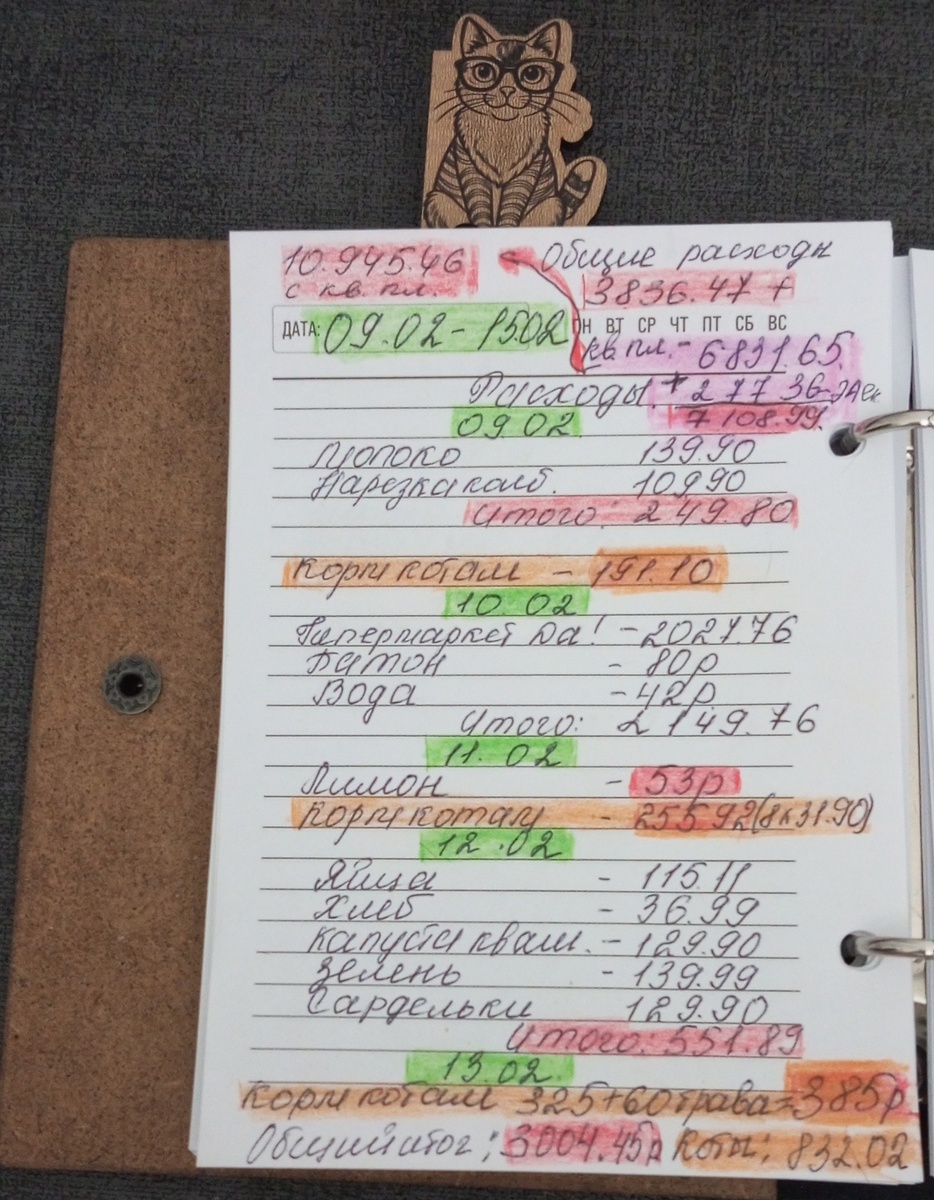 10.945.46 Общие расходы
с кв. пл. 3836.47 +
ДАТА: 09.02 - 15.02 ПН ВТ СР ЧТ ПТ СБ ВС
кв. пл. - 6831.65.
Расходы. + 277 36
09 02 7 108.99.
Молоко 139.90
Нарезка колб. 109.90
Итого: 249.80
Корм котам - 191.10
10.02
Гипермаркет Да! - 2027.76
Батон - 80р
Вода - 42р
Итого: 2149.76
11.02
Лимон - 53р
Корм котам - 255 92 (8х31.90)
12.02
Яйца - 115.11
Хлеб - 36.99
Капуста кваш. - 129.90
Зелень - 139.99
Сардельки 129.90
Итого. 551.89
13.02.
Корм котам 325+60 трава = 385р
Общий итог: 3004.45р Коты: 832.02